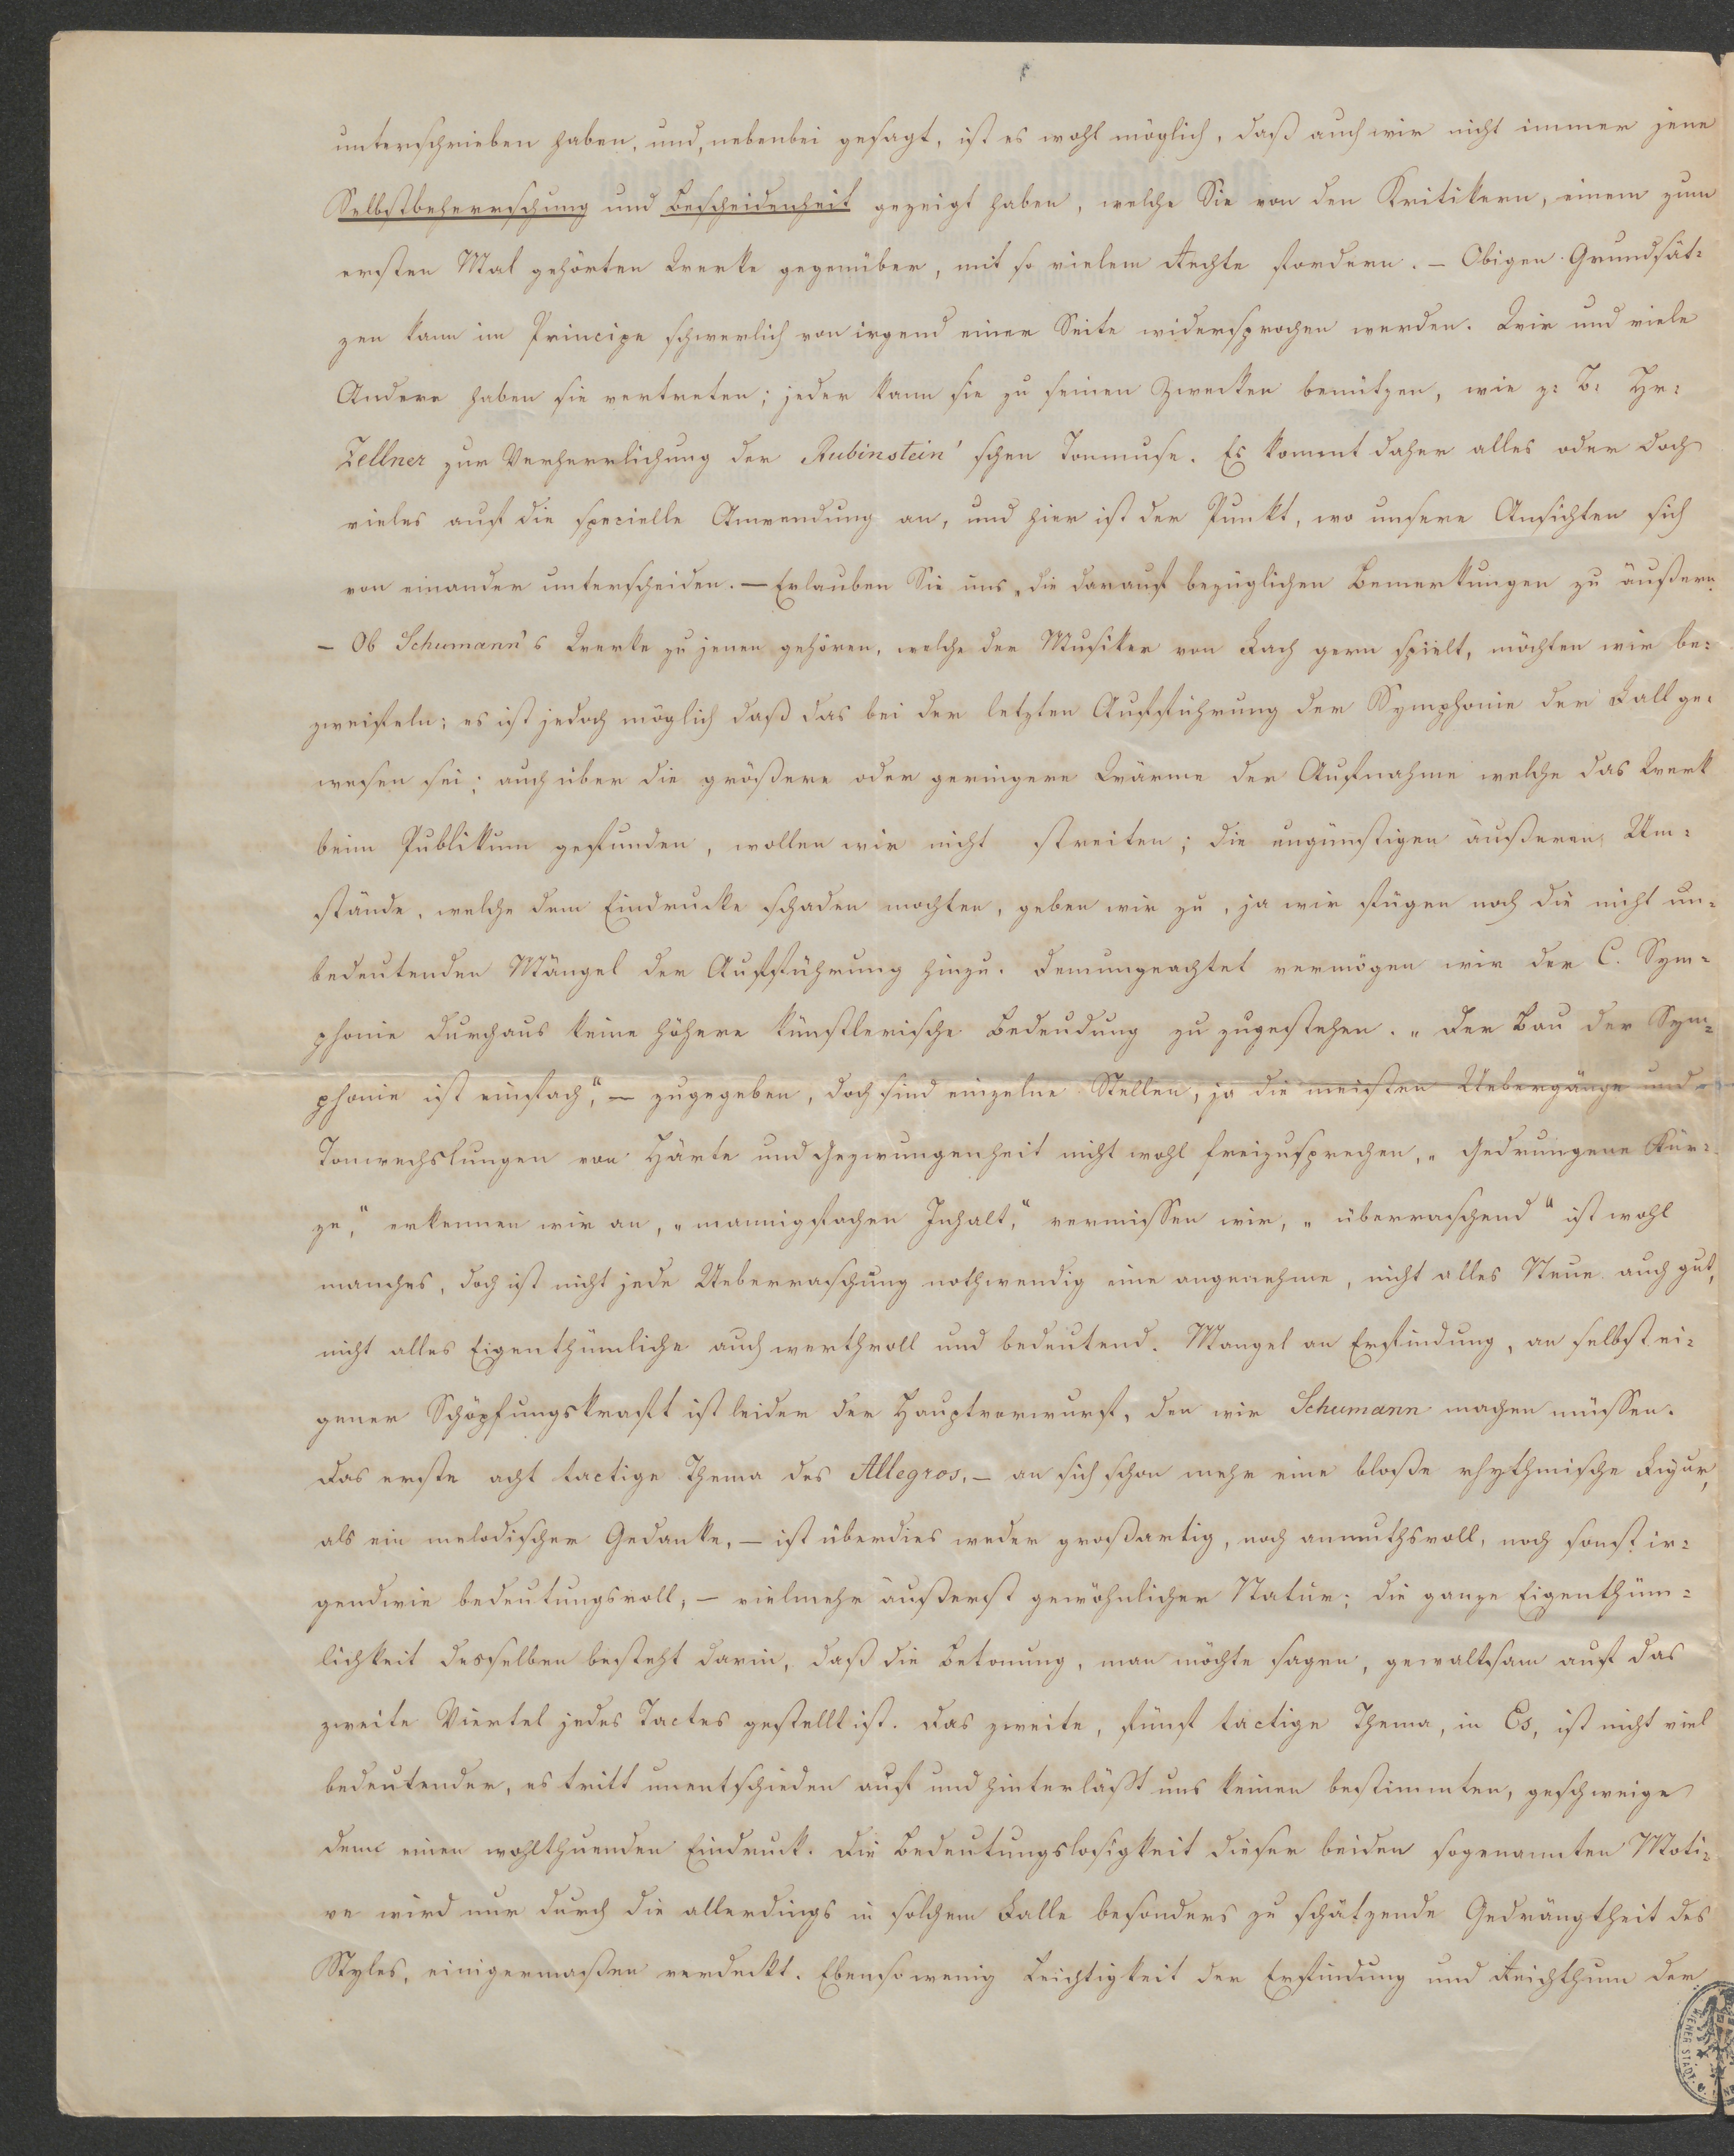 unterschrieben haben, und, nebenbei gesagt, ist es wohl möglich, daß auch wir nicht immer jene
Selbstbeherrschung und Bescheidenheit gezeigt haben, welche Sie von den Kritikern, einem zum
ersten Mal gehörten Werke gegenüber, mit so vielem Rechte fordern. — Obigen Grundsät=
zen kann im Principe schwerlich von irgend einer Seite widersprochen werden. Wir und viele
Andere haben sie vertreten; jeder kann sie zu seinen Zwecken benützen, wie z: B: Hr:
Zellner zur Verherrlichung der Rubinstein'schen Tonmuse. Es kommt daher alles oder doch
vieles auf die specielle Anwendung an, und hier ist der Punkt, wo unsere Ansichten sich
von einander unterscheiden. — Erlauben Sie uns, die darauf bezüglichen Bemerkungen zu äußern.
— Ob Schumann's Werke zu jenen gehören, welche der Musiker von Fach gern spielt, möchten wir be=
zweifeln; es ist jedoch möglich daß das bei der letzten Aufführung der Symphonie der Fall ge=
wesen sei; auch über die größere oder geringere Wärme der Aufnahme welche das Werk
beim Publikum gefunden, wollen wir nicht streiten; die ungünstigen äußeren Um=
stände, welche dem Eindrucke schaden mochten, geben wir zu, ja wir fügen noch die nicht un=
bedeutenden Mängel der Aufführung hinzu. Demungeachtet vermögen wir der C. Sym=
phonie durchaus keine höhere künstlerische Bedeudung zu zugestehen. „Der Bau der Sym=
phonie ist einfach", — zugegeben, doch sind einzelne Stellen, ja die meisten Uebergänge und
Tonwechslungen von Härte und Gezwungenheit nicht wohl freizusprechen, „Gedrungene Kür=
ze," erkennen wir an, „mannigfachen Inhalt," vermissen wir, „überraschend" ist wohl
manches, doch ist nicht jede Ueberraschung nothwendig eine angenehme, nicht alles Neue auch gut,
nicht alles Eigenthümliche auch werthvoll und bedeutend. Mangel an Erfindung, an selbst ei=
gener Schöpfungskraft ist leider der Hauptvorwurf, den wir Schumann machen müssen.
Das erste acht tactige Thema des Allegros, — an sich schon mehr eine bloße rhythmische Figur,
als ein melodischer Gedanke, — ist überdies weder großartig, noch anmuthsvoll, noch sonst ir=
gendwie bedeutungsvoll, — vielmehr äußerst gewöhnlicher Natur; die ganze Eigenthüm=
lichkeit desselben besteht darin, daß die Betonung, man möchte sagen, gewaltsam auf das
zweite Viertel jedes Tactes gestellt ist. Das zweite, fünf tactige Thema, in Es, ist nicht viel
bedeutender, es tritt unentschieden auf und hinterläßt uns keinen bestimmten, geschweige
denn einen wohlthuenden Eindruck. Die Bedeutungslosigkeit dieser beiden sogenannten Moti=
ve wird nur durch die allerdings in solchem Falle besonders zu schätzende Gedrängtheit des
Styles, einigermaßen verdeckt. Ebensowenig Leichtigkeit der Erfindung und Reichthum der
WIENER STADT